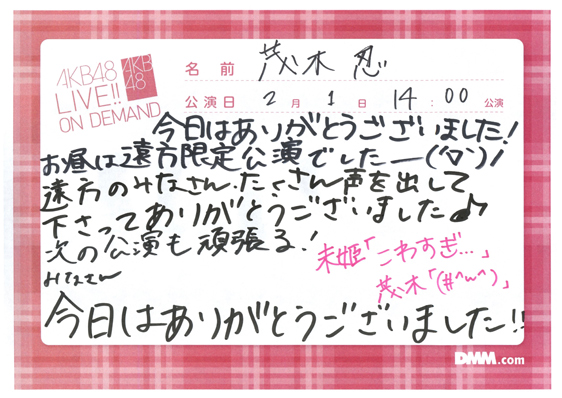 AKB48
LIVE!!
ON DEMAND
AKB
48
名前 茂木 忍
公演日 2月1日 14:00 公演
今日はありがとうございました!
お昼は遠方限定公演でしたー('▽')/
遠方のみなさん、たくさん声を出して
下さってありがとうございました♪
次の公演も頑張る!
みなさん
未姫「こわすぎ…」
茂木「(#^ω^)」
今日はありがとうございました!!
DMM.com